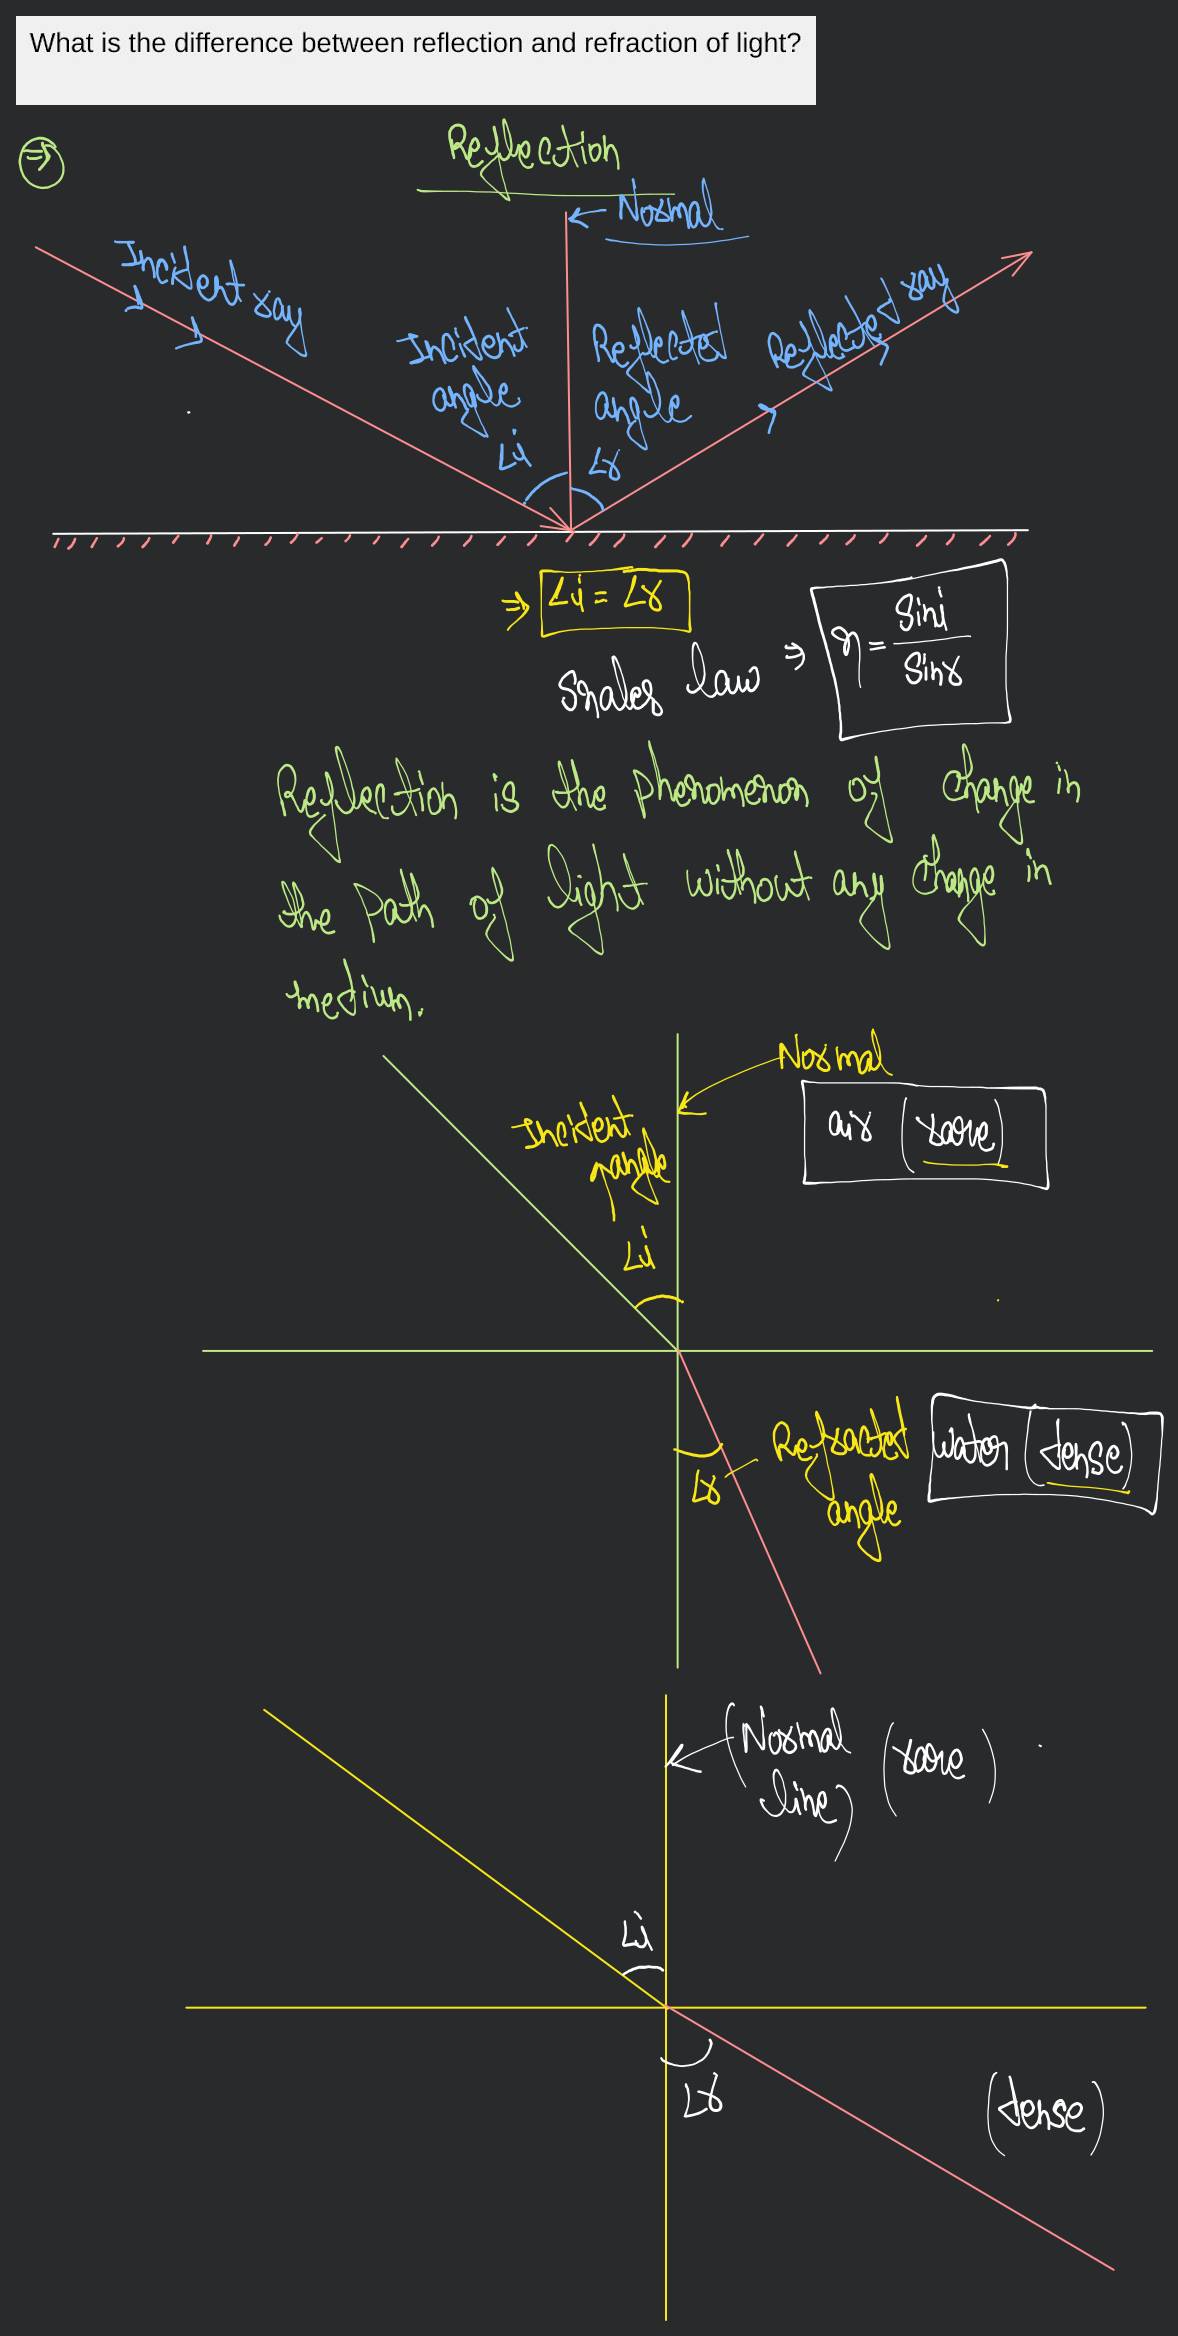 What is the difference between reflection and refraction of light?
⇒
Reflection
Normal
Incident ray
Reflected ray
Incident
angle
∠i
Reflected
angle
∠r
⇒ ∠i = ∠r
Snales law ⇒ η = Sini / Sinr
Reflection is the phenomenon of change in
the path of light without any change in
medium.
Normal
air (rare)
Incident
angle
∠i
Refracted
angle
∠r
water (dense)
(Normal
line)
(rare)
∠i
∠r
(dense)